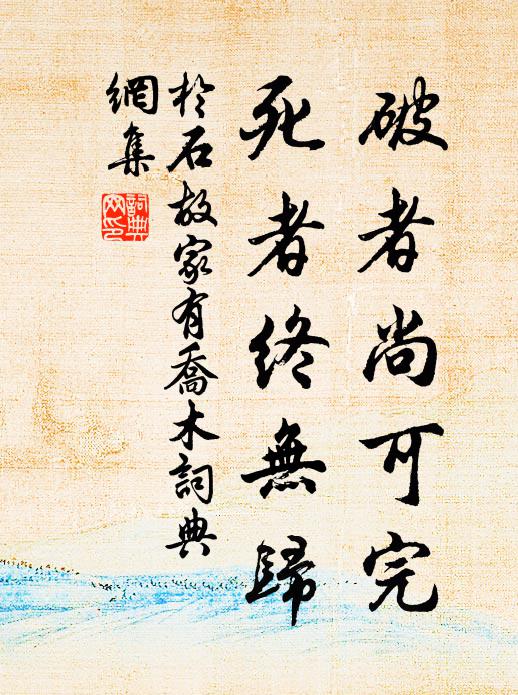 破者尚可完
死者終無歸
於石故家有喬木詞典
網集
詞典
网印